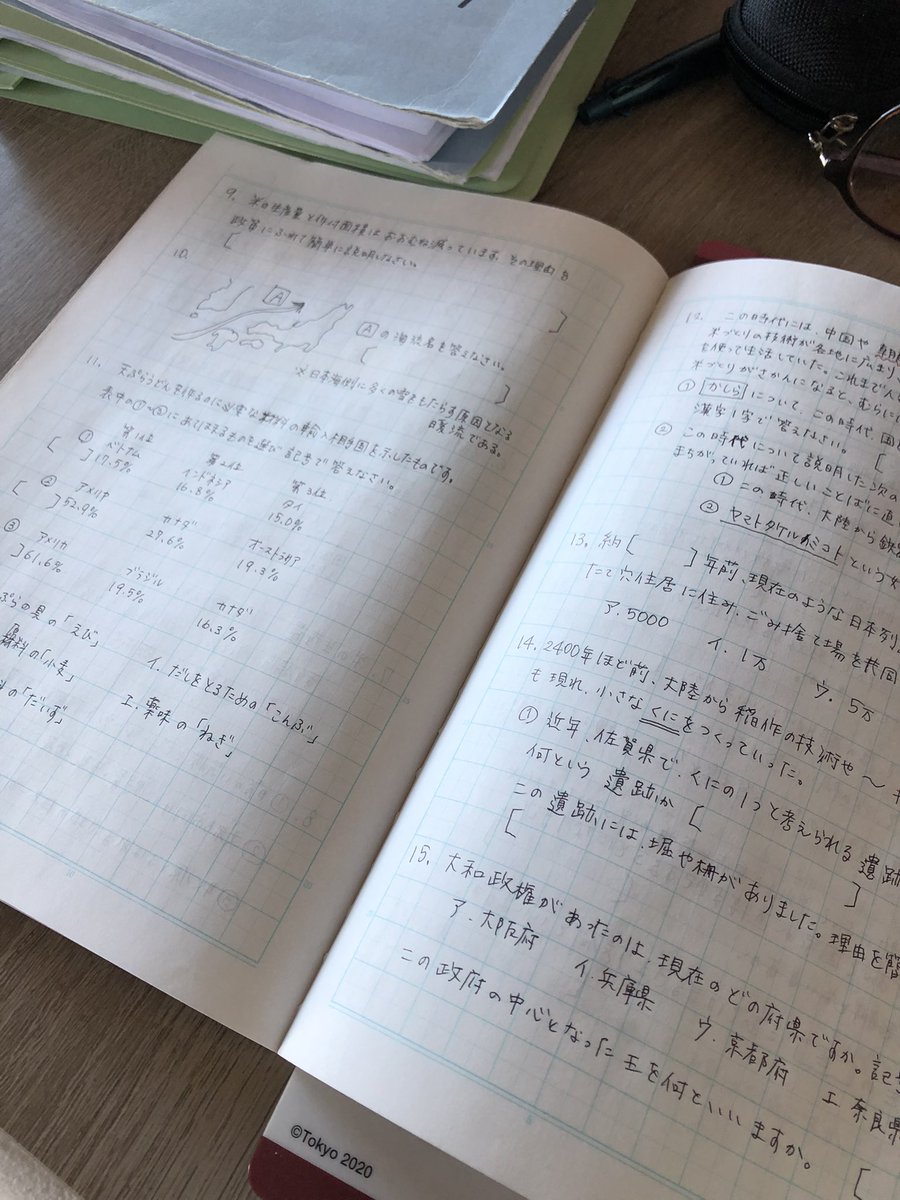 9. 米の生産量と作付面積はおおむね減っています。その理由を
政策にふれて簡単に説明しなさい。
[ ]
10.
A
Aの海流名を答えなさい。
[ ]
※日本海側に多くの雪をもたらす原因となる
暖流である。
11. 天ぷらうどんを作るのに必要な材料の輸入相手国を示したものです。
表中の①〜③にあてはまるものを選び記号で答えなさい。
第1位 第2位 第3位
① ベトナム インドネシア タイ
[ ] 17.5% 16.8% 15.0%
② アメリカ カナダ オーストラリア
[ ] 52.9% 27.6% 19.3%
③ アメリカ ブラジル カナダ
] 61.6% 19.5% 16.3%
ぷらの具の「えび」 イ. だしをとるための「こんぶ」
原料の「小麦」 エ. 薬味の「ねぎ」
の「だいず」
12. この時代には、中国や朝鮮
米づくりの技術が各地に広まり
を使って生活していた。これまで
米づくりがさかんになると、むらに
① かしらについて、この時代
漢字1字で答えなさい。 [
② この時代について説明した次の
まちがっていれば正しいことばに直
① この時代、大陸から鉄
② ヤマトタケルノミコトという
13. 約 [ ] 年前、現在のような日本列
たて穴住居に住み、ごみ捨て場を共同
ア. 5000 イ. 1万 ウ. 5万
14. 2400年ほど前、大陸から稲作の技術や〜
も現れ、小さなくにをつくっていった。
① 近年、佐賀県で、くにの1つと考えられる遺跡
何という遺跡か [ ]
この遺跡には、堀や柵がありました。理由を簡
[
15. 大和政権があったのは、現在のどの府県ですか。記
ア. 大阪府 イ. 兵庫県 ウ. 京都府 エ. 奈良県
この政府の中心となった王を何といいますか。
[
©Tokyo 2020